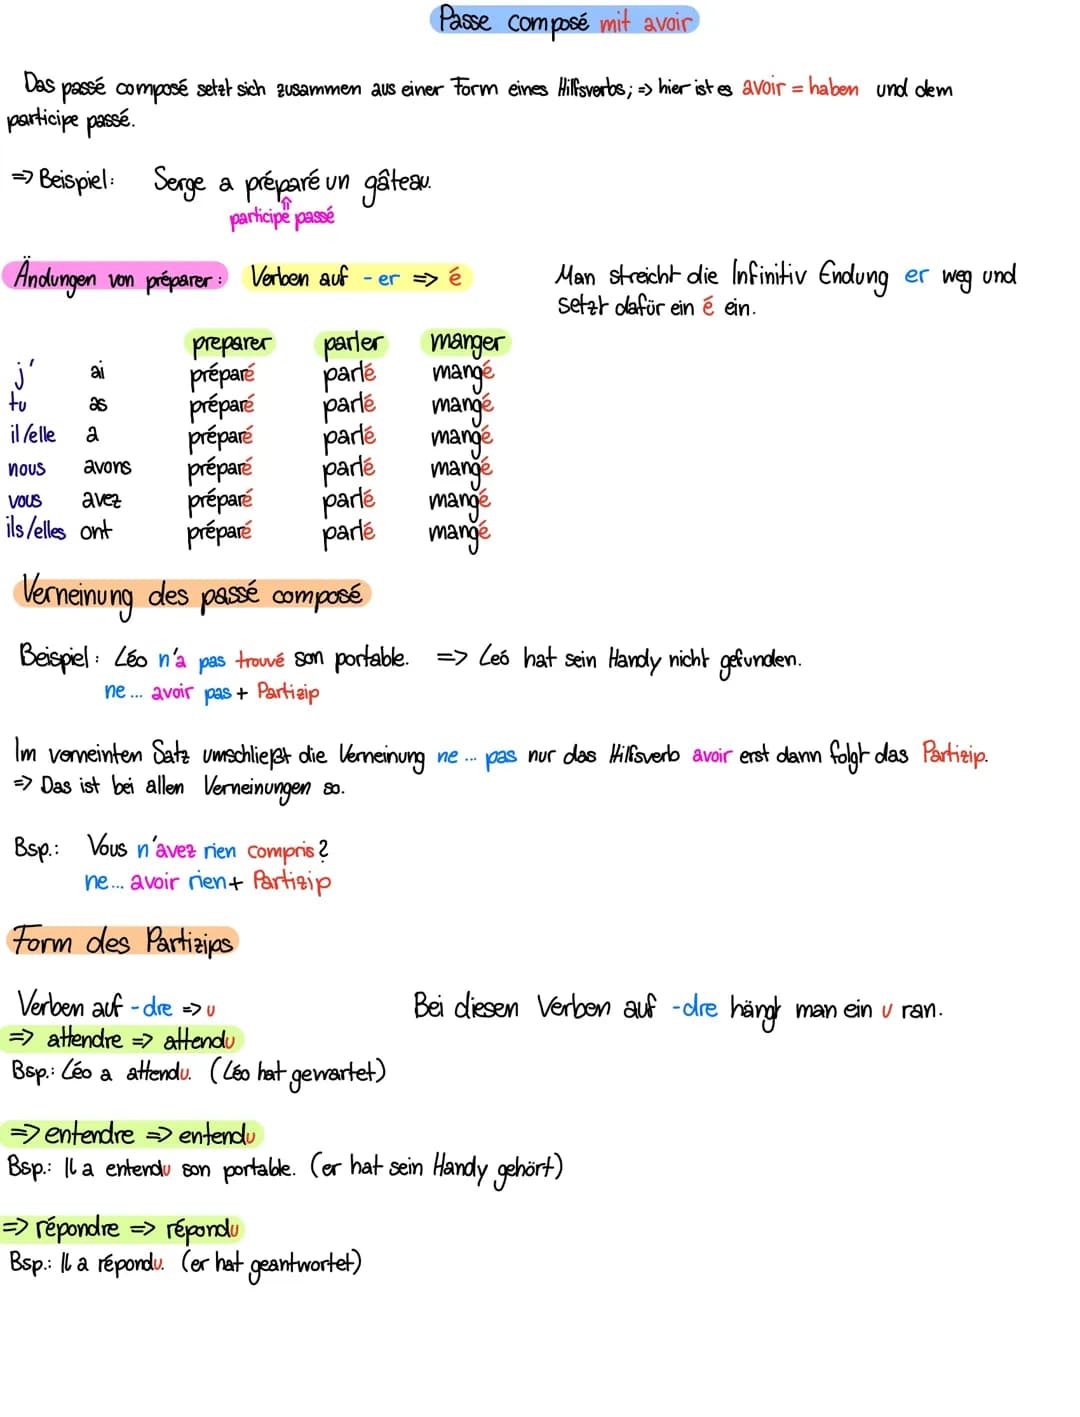 Passe composé mit avoir
Das passé composé setzt sich zusammen aus einer Form eines Hilfsverbs; => hier ist es avoir = haben und dem
participe passé.
=> Beispiel: Serge a préparé un gâteau.
participe passé
Ändungen von préparer: Verben auf -er => é
Man streicht die Infinitiv Endung er weg und
setzt dafür ein é ein.
preparer parler manger
j' ai préparé parlé mangé
tu as préparé parlé mangé
il/elle a préparé parlé mangé
nous avons préparé parlé mangé
vous avez préparé parlé mangé
ils/elles ont préparé parlé mangé
Verneinung des passé composé
Beispiel: Léo n'a pas trouvé son portable. => Leó hat sein Handy nicht gefunden.
ne ... avoir pas + Partizip
Im verneinten Satz umschließt die Verneinung ne ... pas nur das Hilfsverb avoir erst dann folgt das Partizip.
=> Das ist bei allen Verneinungen so.
Bsp.: Vous n'avez rien compris?
ne... avoir rien + Partizip
Form des Partizips
Verben auf -dre => u
Bei diesen Verben auf -dre hängt man ein u ran.
=> attendre => attendu
Bsp.: Léo a attendu. (Léo hat gewartet)
=> entendre => entendu
Bsp.: Il a entendu son portable. (er hat sein Handy gehört)
=> répondre => répondu
Bsp.: Il a répondu. (er hat geantwortet)